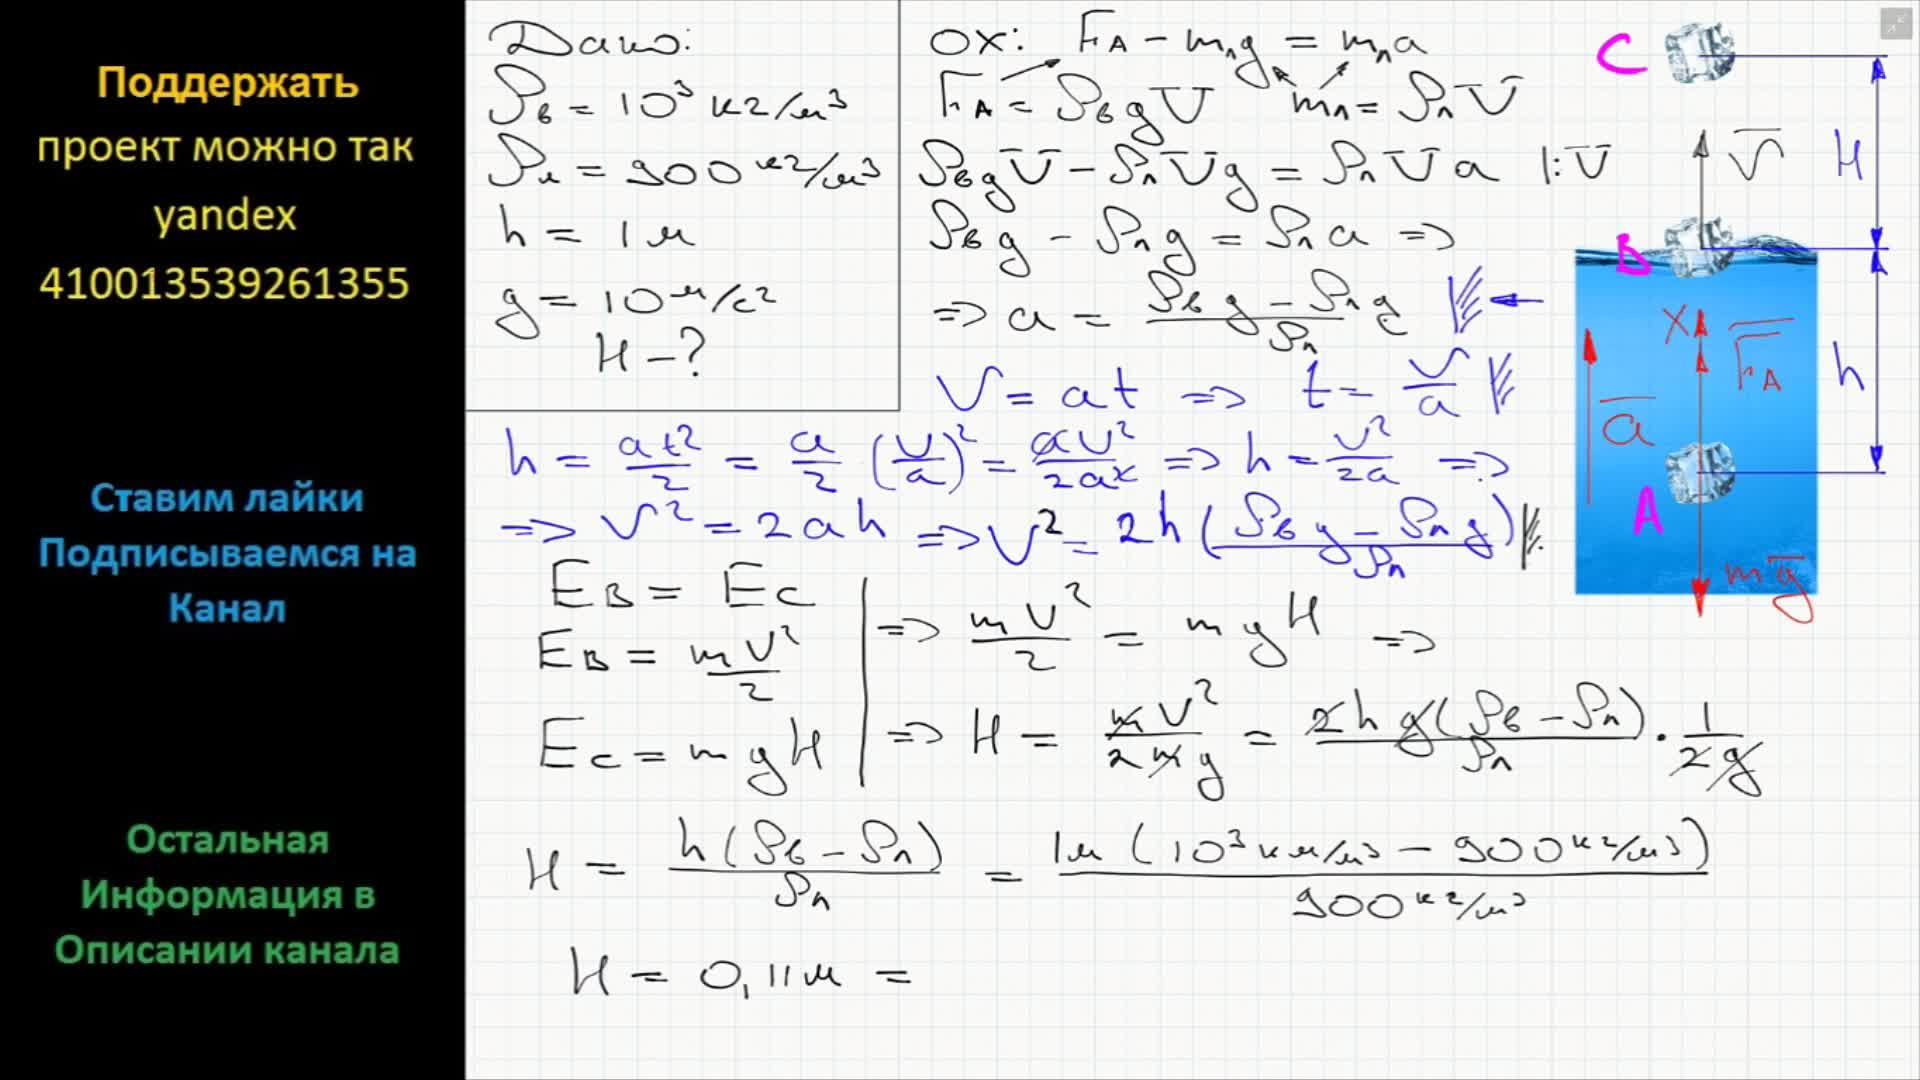 Поддержать
проект можно так
yandex
410013539261355
Ставим лайки
Подписываемся на
Канал
Остальная
Информация в
Описании канала
Дано:
ρв = 10³ кг/м³
ρл = 900 кг/м³
h = 1 м
g = 10 м/с²
H – ?
OX: FA – mлg = mлa
FA = ρвgV mл = ρлV
ρвgV – ρлVg = ρлVa |:V
ρвg – ρлg = ρлa =>
=> a = (ρвg – ρлg)/ρл
V = at => t = V/a
h = at²/2 = a/2 (V/a)² = aV²/2a² => h = V²/2a =>
=> V² = 2ah => V² = 2h(ρвg – ρлg)/ρл
EB = EC
EB = mV²/2
EC = mgH
=> mV²/2 = mgH =>
=> H = mV²/2mg = 2hg(ρв – ρл)/ρл · 1/2g
H = h(ρв – ρл)/ρл = 1м (10³ км/м³ – 900 кг/м³)/900 кг/м³
H = 0,11м =
C
H
V
B
X
FA
h
a
A
mg